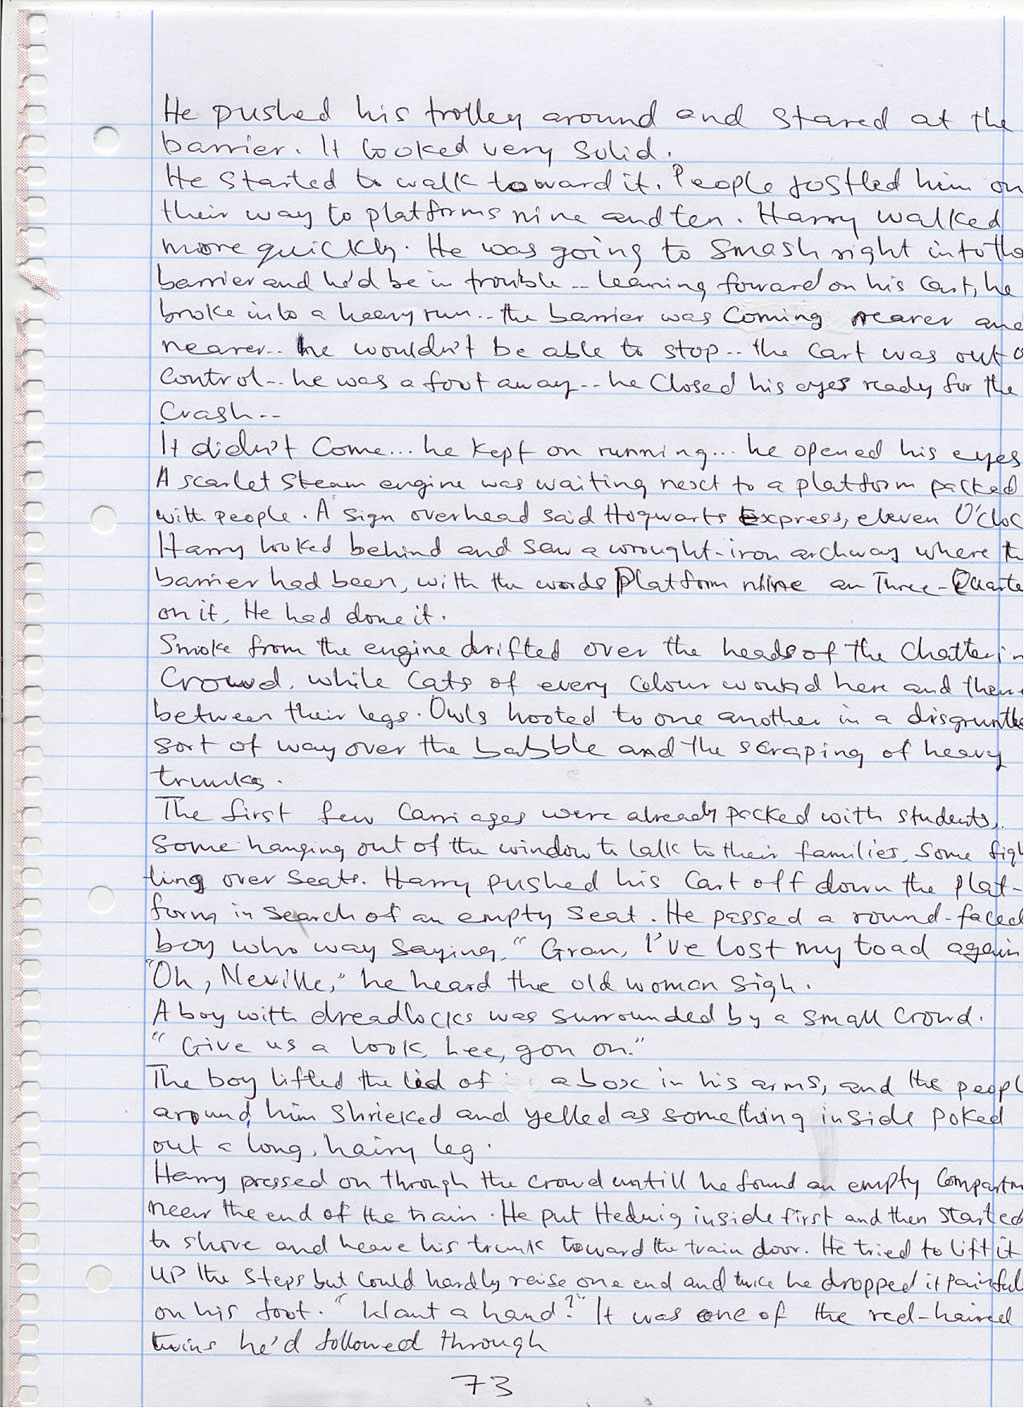 He pushed his trolley around and stared at the
barrier. It looked very solid.
He started to walk toward it. People jostled him on
their way to platforms nine and ten. Harry walked
more quickly. He was going to smash right into the
barrier and he'd be in trouble -- leaning forward on his cart, he
broke into a heavy run .. the barrier was coming nearer and
nearer .. he wouldn't be able to stop .. the cart was out o
control -- he was a foot away -- he closed his eyes ready for the
crash --
It didn't come... he kept on running... he opened his eyes
A scarlet steam engine was waiting next to a platform packed
with people. A sign overhead said Hogwarts Express, eleven O'cloc
Harry looked behind and saw a wrought-iron archway where t
barrier had been, with the words Platform nine an Three-Quarte
on it, He had done it.
Smoke from the engine drifted over the heads of the chatterin
crowd, while cats of every colour wound here and there
between their legs. Owls hooted to one another in a disgruntle
sort of way over the babble and the scraping of heavy
trunks.
The first few carriages were already packed with students,
some hanging out of the window to talk to their families, some figh
ting over seats. Harry pushed his cart off down the plat-
form in search of an empty seat. He passed a round-faced
boy who way saying, "Gran, I've lost my toad again
"Oh, Neville," he heard the old woman sigh.
A boy with dreadlocks was surrounded by a small crowd.
"Give us a look, Lee, gon on."
The boy lifted the lid of a box in his arms, and the peopl
around him shrieked and yelled as something inside poked
out a long, hairy leg.
Harry pressed on through the crowd untill he found an empty compartm
near the end of the train. He put Hedwig inside first and then started
to shove and heave his trunk toward the train door. He tried to lift it
up the steps but could hardly raise one end and twice he dropped it painful
on his foot. "Want a hand?" It was one of the red-haired
twins he'd followed through
73